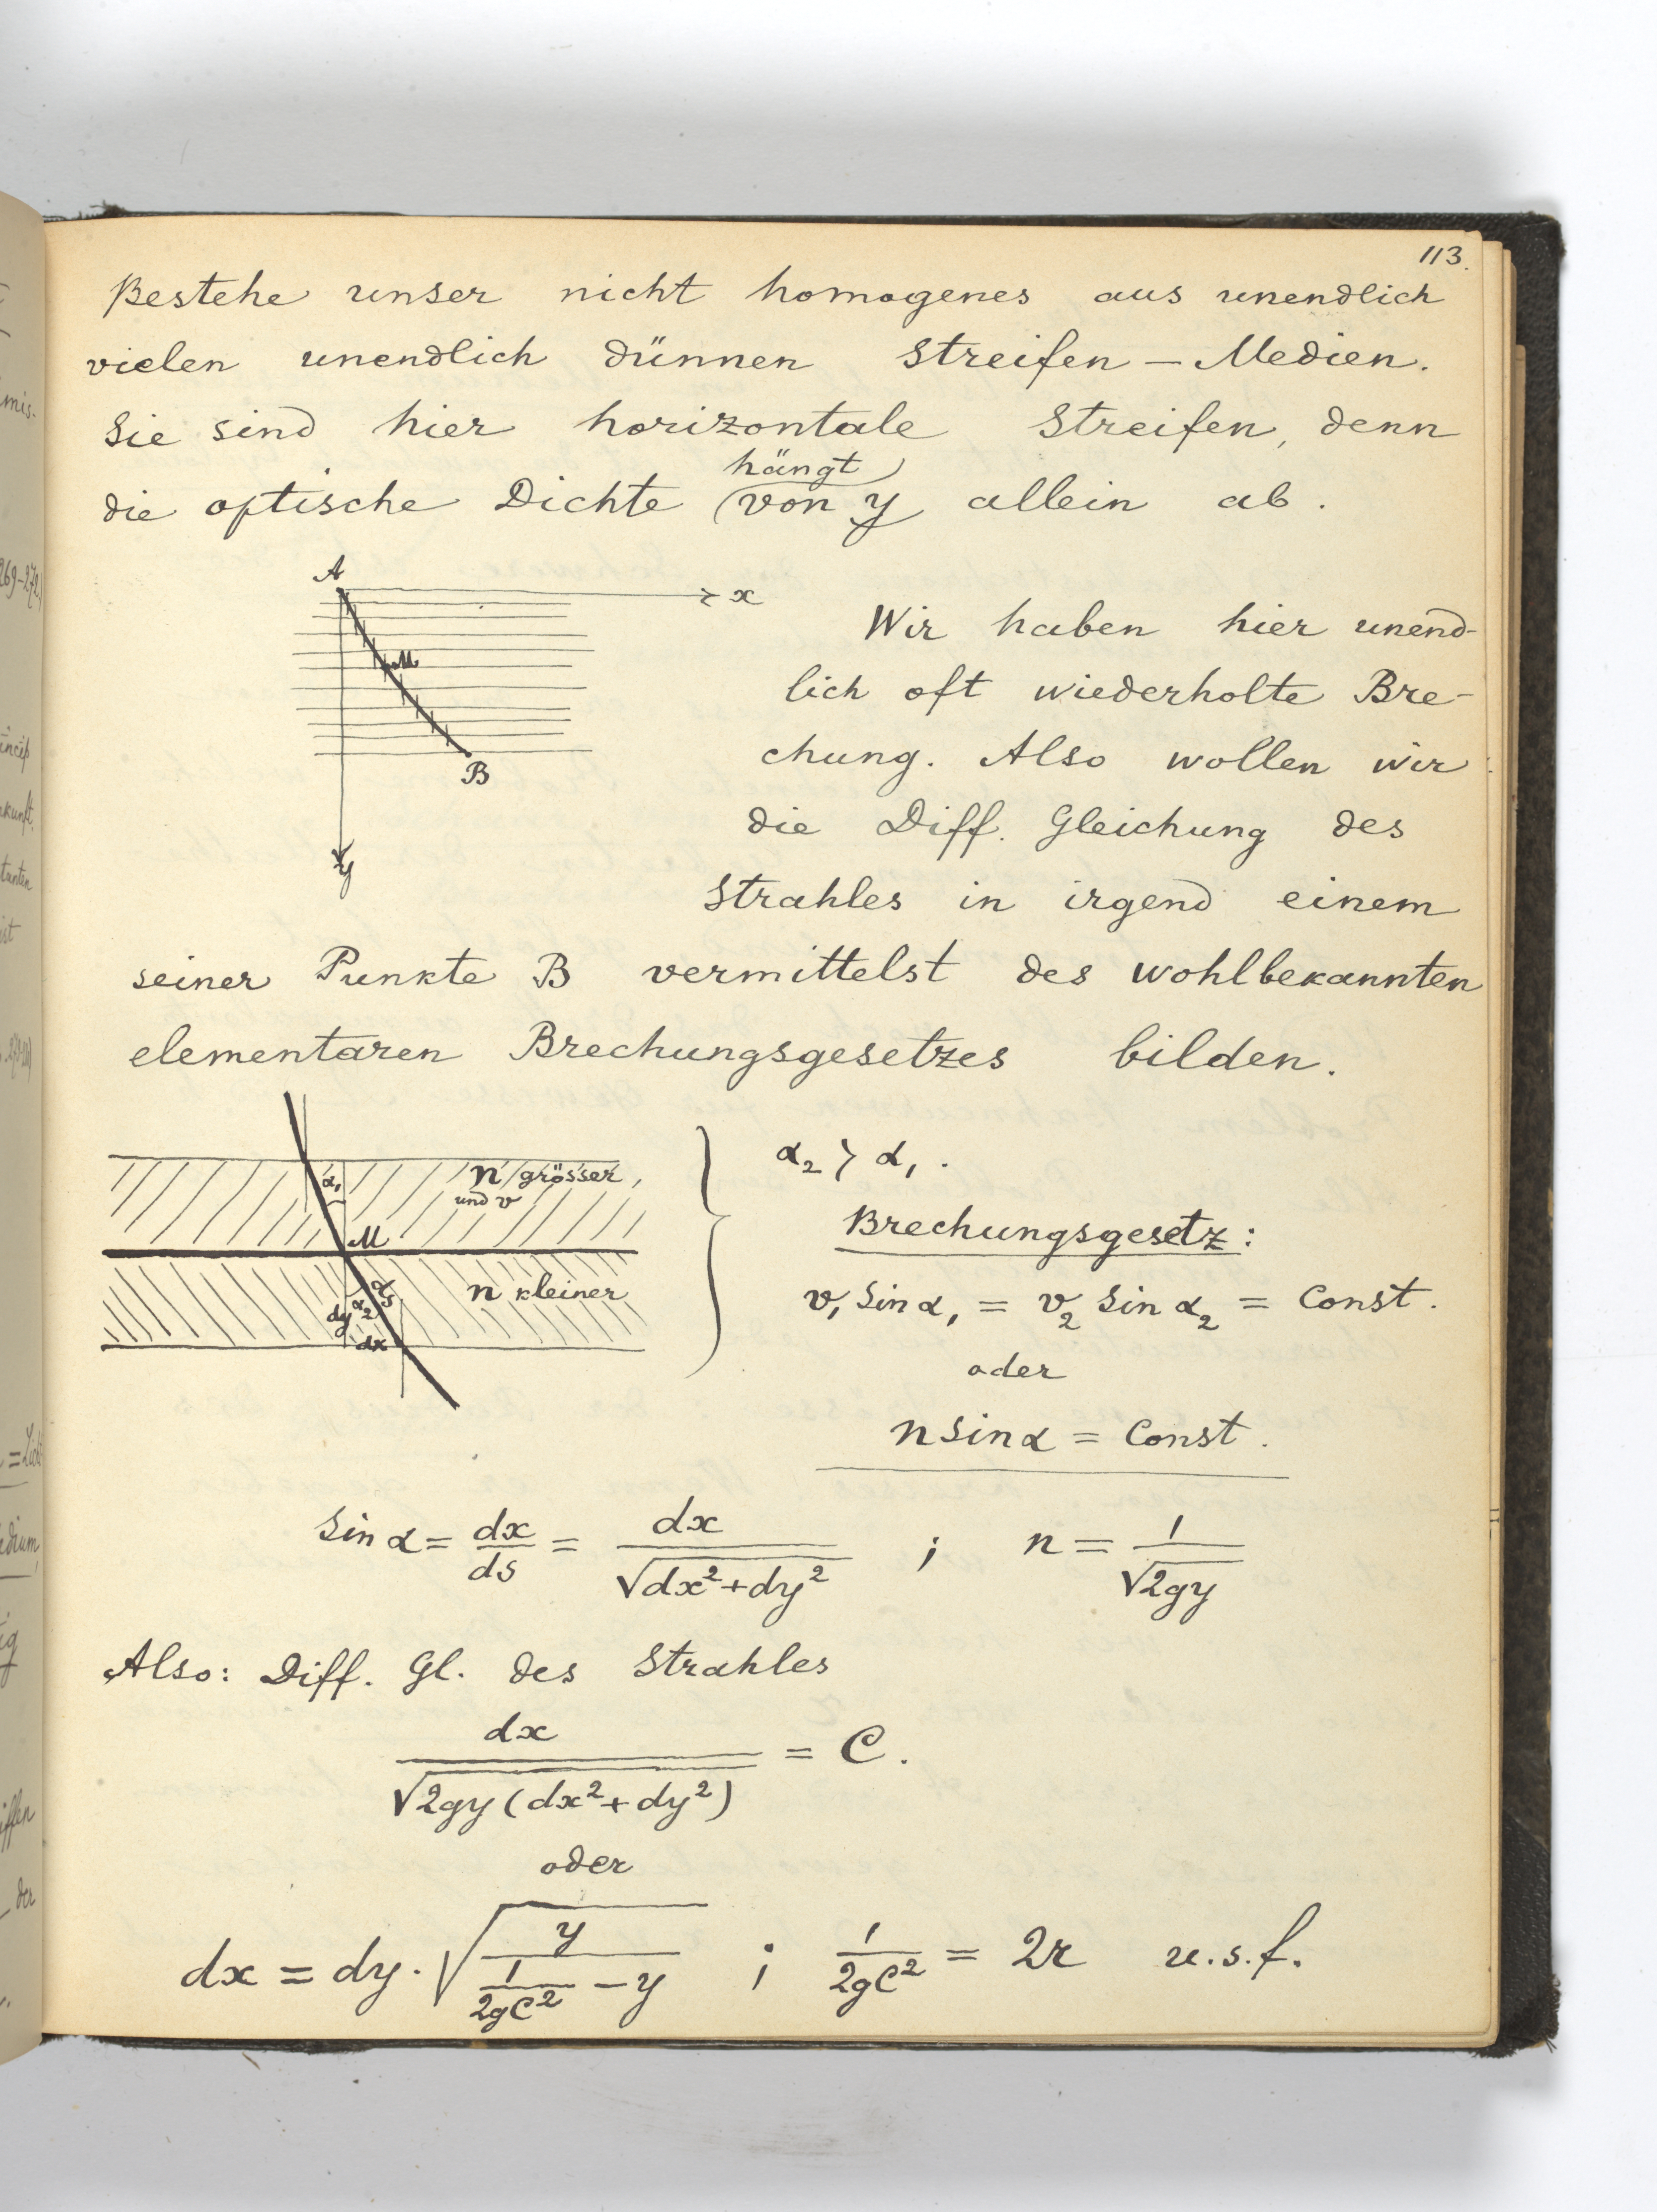 113.
Bestehe unser nicht homogenes aus unendlich
vielen unendlich dünnen Streifen – Medien.
Sie sind hier horizontale Streifen, denn
hängt
die optische Dichte (von y) allein ab.
A
x
M
B
y
Wir haben hier unend-
lich oft wiederholte Bre-
chung. Also wollen wir
die Diff. Gleichung des
Strahles in irgend einem
seiner Punkte B vermittelst des wohlbekannten
elementaren Brechungsgesetzes bilden.
α₁
n grösser,
und v
M
n kleiner
dy α₂ ds
dx
α₂ > α₁.
Brechungsgesetz:
v₁ Sin α₁ = v₂ Sin α₂ = Const.
oder
n Sin α = Const.
Sin α = dx/ds = dx/√(dx²+dy²) ; n = 1/√(2gy)
Also: Diff. Gl. des Strahles
dx/√(2gy(dx²+dy²)) = C.
oder
dx = dy·√(y/(1/(2gC²) – y)) ; 1/(2gC²) = 2r u.s.f.